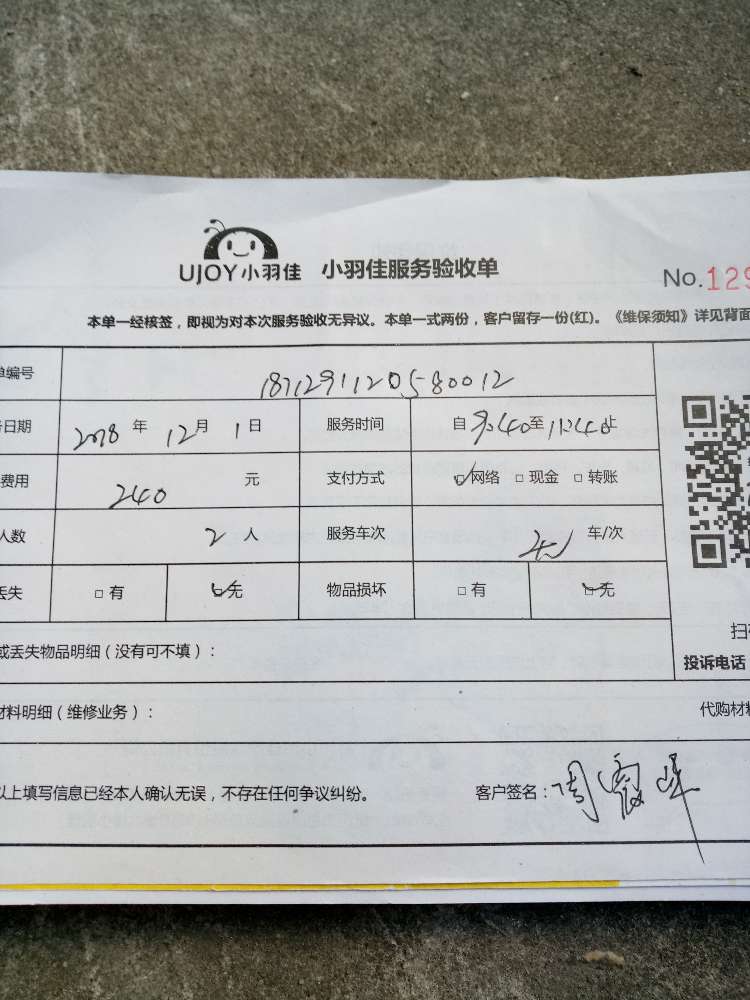 UJOY小羽佳 小羽佳服务验收单
No.129
本单一经核签，即视为对本次服务验收无异议。本单一式两份，客户留存一份(红)。《维保须知》详见背面
单编号 181291120580012
日期 2018 年 12 月 1 日 服务时间 自 9:40 至 11:40 止
费用 240 元 支付方式 网络 现金 转账
人数 2 人 服务车次 车/次
丢失 有 无 物品损坏 有 无
扫
或丢失物品明细（没有可不填）：
投诉电话
材料明细（维修业务）：
代购材料
以上填写信息已经本人确认无误，不存在任何争议纠纷。 客户签名：周